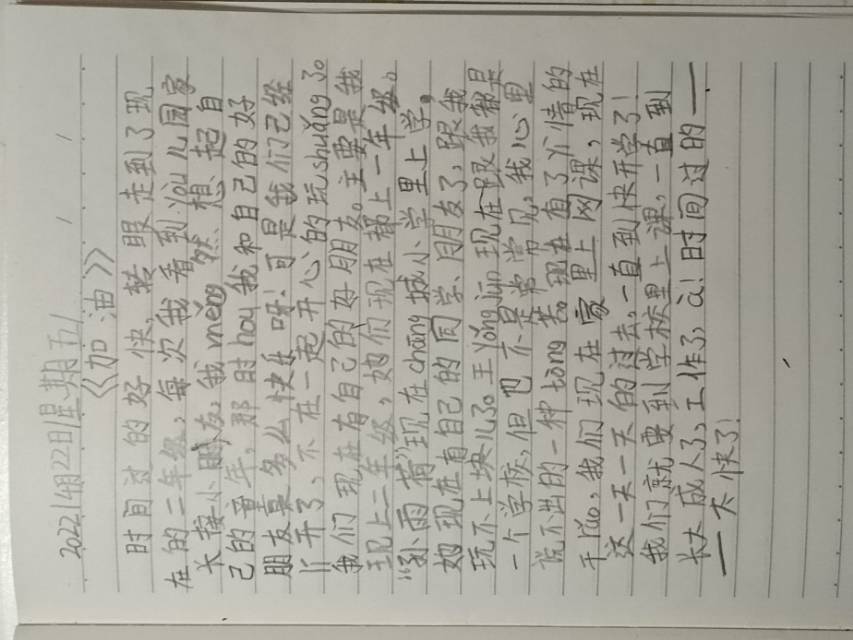 2022年4月22日星期五
《加油》
时间过的好快，转眼走到了现
在的二年级，每次我看到yòu儿园家
长接小朋友，我měng然想起自
己的童年，那时hou我和自己的好
朋友真多么快乐呀！可是我们已经
开了，不在一起开心的玩shuǎng了。
我们现在有自己的好朋友。主要是我
现上二年级，她们现在都上一年级。
"孙雨荷"现在chāng城小学里上学。
她现在有自己的同学、朋友了，跟我
玩不上块儿了。王yǒng jùn现在跟我都是
一个学校，但也不是常常见，我心里
说不出的一种tòng苦。现在有了yì情的
干rǎo，我们现在家里上网课，现在
这一天一天的过去，一直到快开学了！
我们就要到学校里上课，一直到
长大成人了，工作了，à！时间过的——
——太快了！